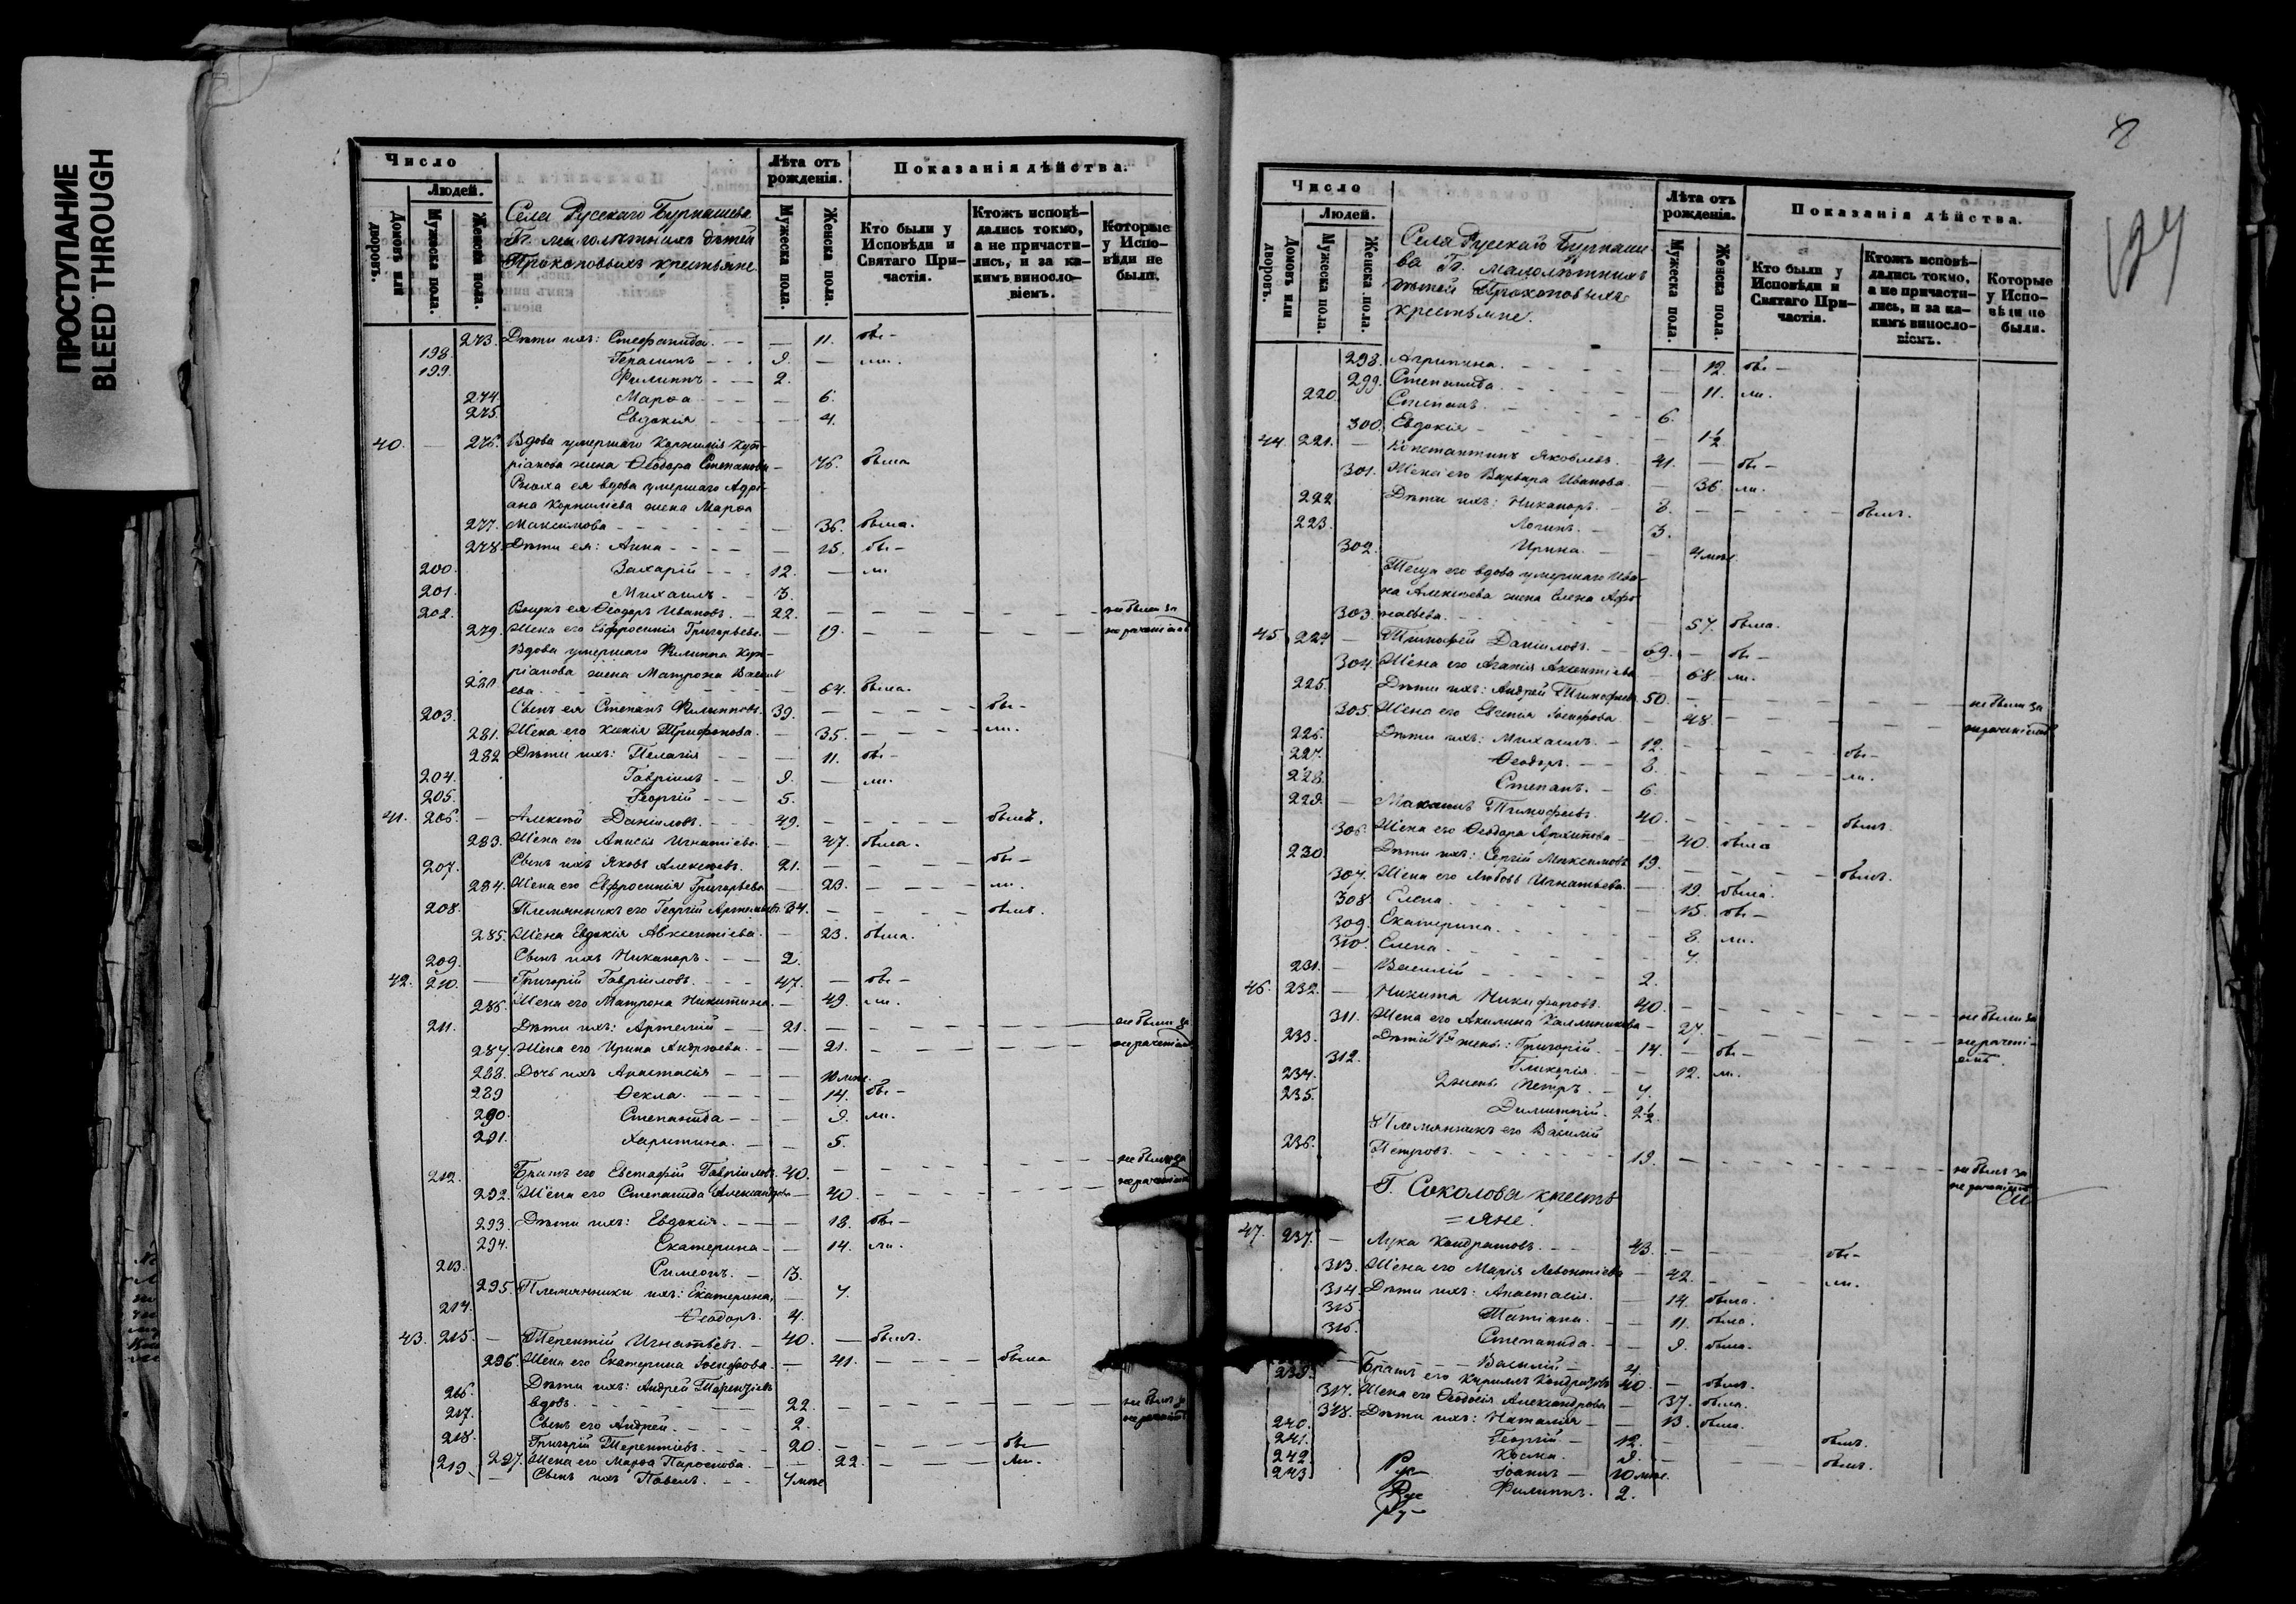 ПРОСТУПАНИЕ
BLEED THROUGH
Число
Людей.
Домовъ или дворовъ.
Мужеска пола.
Женска пола.
Села Русскаго Бурнашева
Гг. малолѣтнихъ дѣтей
Прокоповыхъ крестьяне
Лѣта отъ рожденія.
Мужеска пола.
Женска пола.
Показанія дѣйства.
Кто были у Исповѣди и Святаго При-частія.
Ктожъ исповѣ-дались токмо, а не причасти-лись, и за ка-кимъ виносло-віемъ.
Которые у Испо-вѣди не были.
273. Дѣти ихъ: Стефанида — 11. бы-
198. Герасимъ 9. — ли.
199. Филиппъ 2.
274. Марѳа — 6.
275. Евдокія — 4.
40. — 276. Вдова умершаго Корнилія Куп-
ріанова жена Ѳеодора Степанова — 76. была
Сноха ея вдова умершаго Адрі-
ана Корниліева жена Марѳа
277. Максимова — 36. была.
278. Дѣти ея: Анна — 15. бы-
200. Захарій 12. — ли
201. Михаилъ 3.
202. Внукъ ея Ѳеодоръ Ивановъ 22. не были за
279. Жена его Евфросинія Григорьева — 19. нераченіемъ
Вдова умершаго Филиппа Куп-
ріанова жена Матрона Василь
280. ева — 64. была.
203. Сынъ ея Степанъ Филипповъ 39. бы-
281. Жена его Ксенія Трифонова — 35. ли.
282 Дѣти ихъ: Пелагія — 11. бы-
204. Гавріилъ 9. — ли.
205. Георгій 5.
41. 206. — Алексѣй Даніиловъ 49. былъ.
283. Жена его Анисія Игнатіева — 47. была.
207. Сынъ ихъ Яковъ Алексѣевъ 21. бы-
284. Жена его Евфросинія Григорьева — 23. ли.
208. Племянникъ его Георгій Артемьевъ 34. былъ.
285. Жена Евдокія Авксентіева — 23. была.
209. Сынъ ихъ Никаноръ 2.
42. 210. — Григорій Гавріиловъ 47. — бы-
286. Жена его Матрона Никитина — 49. ли.
211. Дѣти ихъ: Артемій 21. не были за
287. Жена его Ирина Андреева — 21. нераченіемъ
288. Дочь ихъ Анастасія — 10 мѣс.
289 Ѳекла — 14. бы-
290. Степанида — 9. ли.
291. Харитина — 5.
212. Братъ его Евстафій Гавріиловъ 40. не были за
292. Жена его Степанида Александрова — 40. нераченіемъ
293. Дѣти ихъ: Евдокія — 18. бы-
294. Екатерина — 14. ли.
213. Симеонъ 13.
295. Племянники ихъ: Екатерина — 7.
214. Ѳеодоръ 4.
43. 215. — Терентій Игнатьевъ 40. — былъ.
296. Жена его Екатерина Іосифова — 41. была
216. Дѣти ихъ: Андрей Терентіевъ
вдовъ 22. не былъ за
217. Сынъ его Андрей 2. нераченіемъ
218. Григорій Терентіевъ 20. бы-
297. Жена его Марѳа — 22. ли.
219. — Сынъ ихъ Павелъ 4 мѣс
8
124
Число
Людей.
Домовъ или дворовъ.
Мужеска пола.
Женска пола.
Села Русскаго Бурнаше
ва Гг. малолѣтнихъ
дѣтей Прокоповыхъ
крестьяне.
Лѣта отъ рожденія.
Мужеска пола.
Женска пола.
Показанія дѣйства.
Кто были у Исповѣди и Святаго При-частія.
Ктожъ исповѣ-дались токмо, а не причасти-лись, и за ка-кимъ виносло-віемъ.
Которые у Испо-вѣди не были.
298. Агрипина — 12. бы-
299. Степанида — 11. ли.
220. Степанъ 6.
300. Евдокія — 1½
44. 221. — Константинъ Яковлевъ 41. — бы-
301. Жена его Варвара Иванова — 36. ли.
222 Дѣти ихъ: Никаноръ 8. былъ.
223. Логинъ 3.
302. Ирина — 4 мѣс.
Теща его вдова умершаго Ива-
на Алексѣева жена Елена Афо
303. насьева — 57. была.
45. 224 — Тимофей Даніиловъ 69. — бы-
304. Жена его Агапія Авксентіева — 68. ли.
225. Дѣти ихъ: Андрей Тимофеевъ 50. не были за
305. Жена его Евгенія Іосифова — 48. нераченіемъ
226. Дѣти ихъ: Михаилъ 12. бы-
227. Ѳеодоръ 8. ли.
228. Степанъ 6.
229. — Максимъ Тимофеевъ 40. былъ.
306. Жена его Ѳеодора Архипова — 40. была
230. Дѣти ихъ: Сергій Максимовъ 19. былъ.
307. Жена его Любовь Игнатьева — 19. была.
308. Елена — 15. бы-
309. Екатерина — 8. ли.
310. Елена — 4.
231. — Василій 2.
46. 232. — Никита Никифоровъ 40. не были за
311. Жена его Акилина Каллиникова — 27. нерачені-
емъ
233. Дѣтій 1й жены: Григорій 14. — бы-
312. Гликерія — 12. ли.
234. 2 жены Петръ 4.
235. Димитрій 2½.
Племянникъ его Василій
236. Петровъ 19. не былъ за
нераченіемъ
Г. Соколова кресть
=яне.
47. 237. — Лука Кондратовъ 43. бы-
313. Жена его Марія Левонтіева — 42. ли.
314. Дѣти ихъ: Анастасія — 14. была.
315. Татіана — 11. была.
316. Степанида — 9. была.
— Василій 4.
239. Братъ его Кириллъ Кондратовъ 40. — былъ.
317. Жена его Ѳеодосія Александрова — 37. была.
318. Дѣти ихъ: Наталія — 13. была.
240. Георгій 12. былъ.
241. Косма 9. былъ.
242. Іоаннъ 10 мѣс.
243 Филиппъ 2.